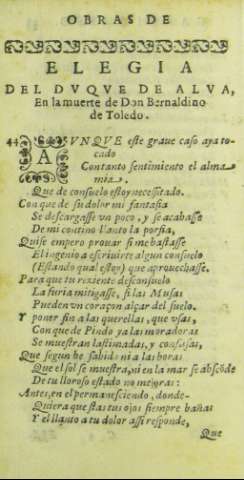 OBRAS DE
ELEGIA
DEL DVQVE DE ALVA,
En la muerte de Don Bernaldino
de Toledo.
44 AVNQVE este graue caso aya to-
cado
Con tanto sentimiento el alma
mia,
Que de consuelo estoy necessitado.
Con que de su dolor mi fantasia
Se descargasse vn poco, y se acabasse
De mi contino llanto la porfia,
Quise empero prouar si me bastasse
El ingenio a escriuirte algun consuelo
(Estando qual estoy) que aprouechasse.
Para que tu reziente desconsuelo
La furia mitigasse, si las Musas
Pueden vn coraçon alçar del suelo.
Y poner fin a las querellas, que vsas,
Con que de Pindo ya las moradoras
Se muestran lastimadas, y confusas,
Que segun he sabido ni a las horas
Que el sol se muestra, ni en la mar se abscõde
De tu lloroso estado no mejoras:
Antes, en el permanesciendo, donde-
Quiera que estas tus ojos siempre bañas
Y el llanto a tu dolor assi responde,
Que